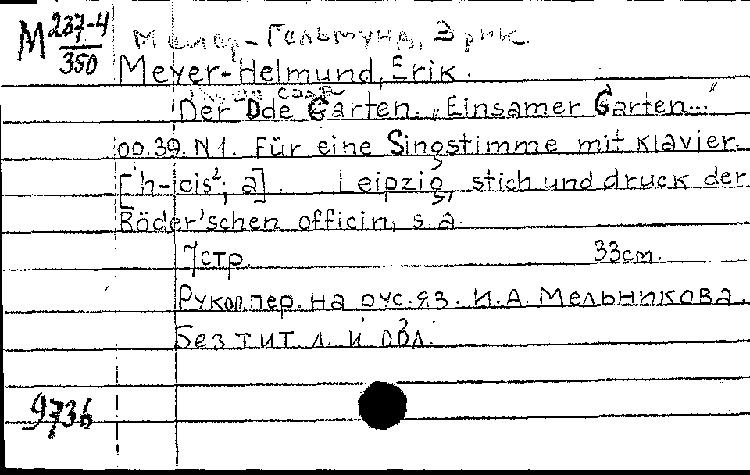 М 237-4
350
Мейер-Гельмунд, Эрик.
Meyer-Helmund, Erik.
Der Öde Garten. „Einsamer Garten..."
op. 39. N1. Für eine Singstimme mit Klavier
[h-cis²; a]. Leipzig, stich und druck der
Röder'schen officin, s.a.
7стр. 33см.
Рукоп. пер. на рус. яз. И. А. Мельникова.
Без тит. л. и обл.
9736